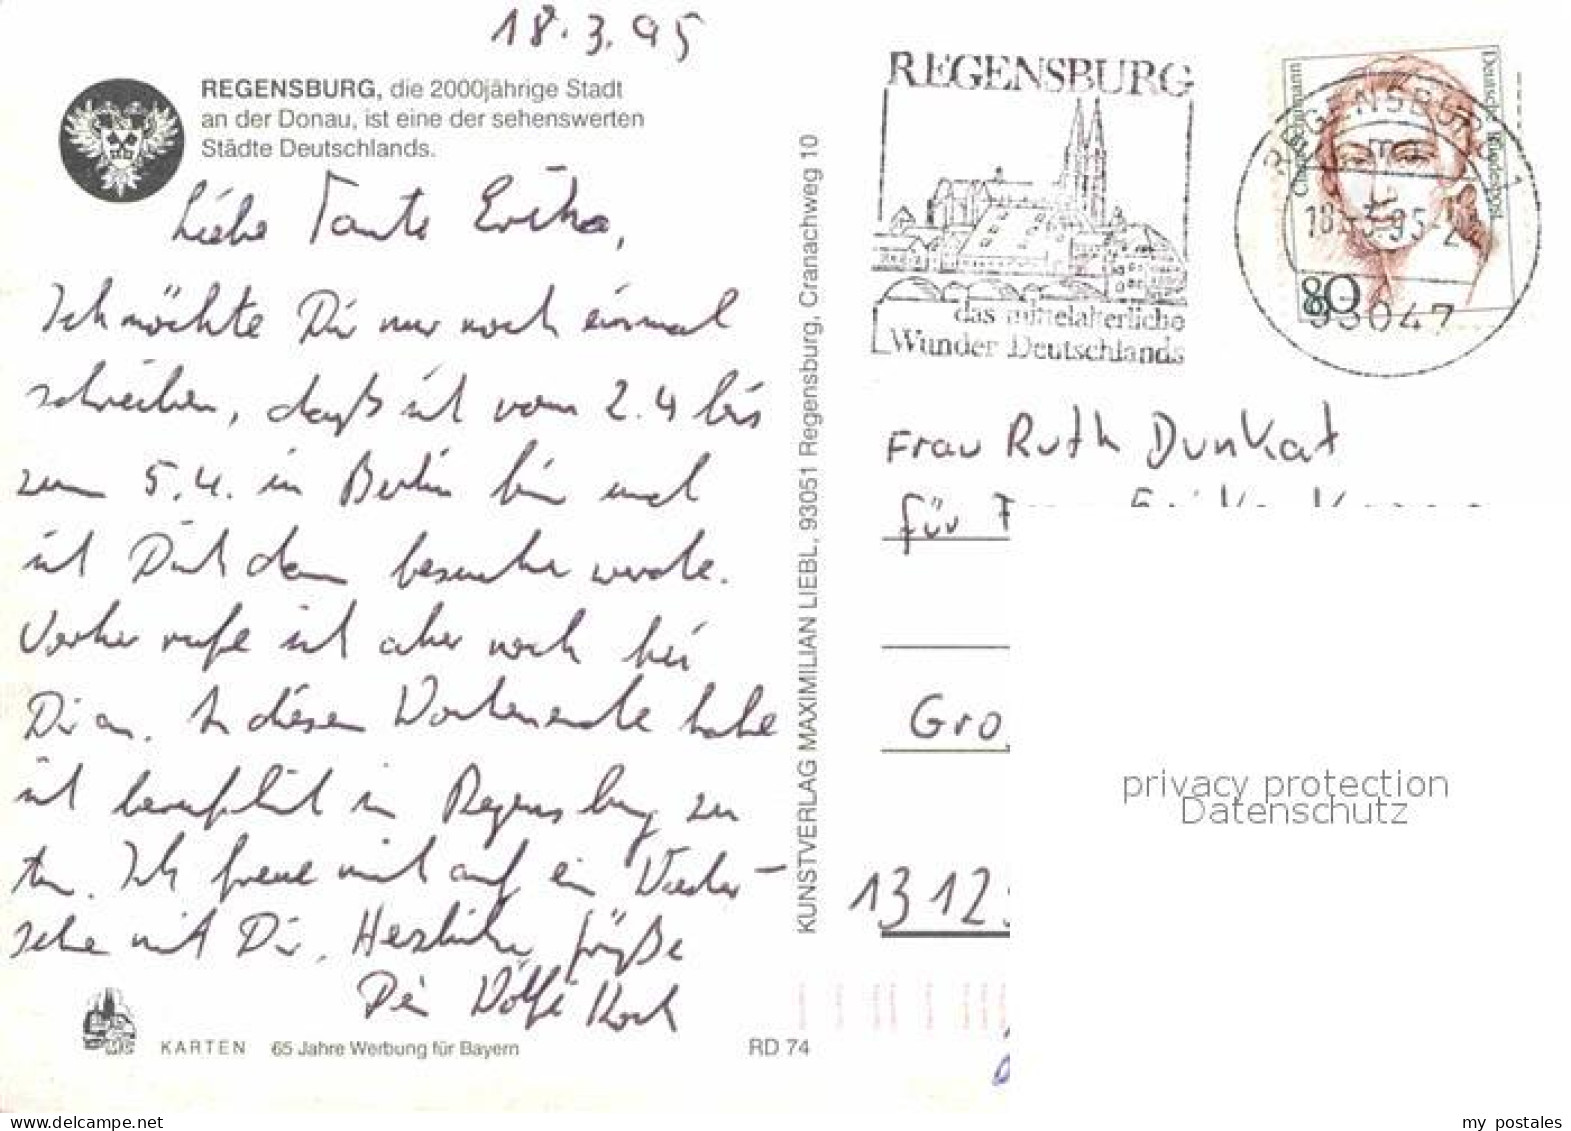 18.3.95
REGENSBURG, die 2000jährige Stadt
an der Donau, ist eine der sehenswerten
Städte Deutschlands.
Liebe Tante Erika,
Ich möchte Dir nur noch einmal
schreiben, daß ich vom 2.4 bis
zum 5.4. in Berlin bin und
ich Dich dann besuchen werde.
Vorher rufe ich aber noch bei
Dir an. In diesem Wochenende habe
ich beruflich in Regensburg zu
tun. Ich freue mich auf ein Wieder-
sehen mit Dir. Herzliche Grüße
Dein Wölfi Koch
KARTEN 65 Jahre Werbung für Bayern
RD 74
KUNSTVERLAG MAXIMILIAN LIEBL, 93051 Regensburg, Cranachweg 10
REGENSBURG
das mittelalterliche
Wunder Deutschlands
REGENSBURG 1
mn
18.-3.95-
93047
Deutsche Bundespost
80
Frau Ruth Dunkat
für
Gro
1312
privacy protection
Datenschutz
my_postales
www.delcampe.net